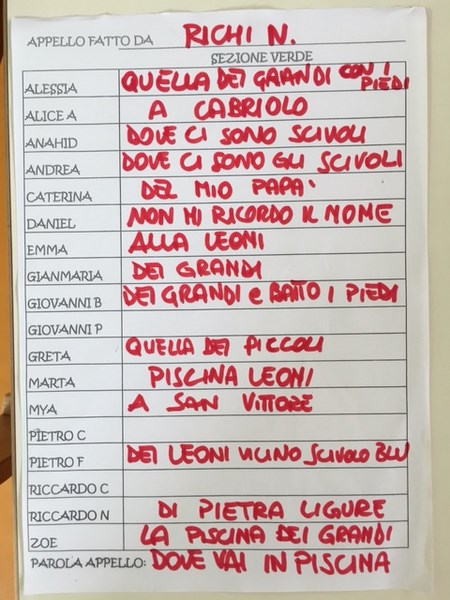 APPELLO FATTO DA RICHI N.
SEZIONE VERDE
ALESSIA QUELLA DEI GRANDI CON I PIEDI
ALICE A A CABRIOLO
ANAHID DOVE CI SONO SCIVOLI
ANDREA DOVE CI SONO GLI SCIVOLI
CATERINA DEL MIO PAPA'
DANIEL NON MI RICORDO IL NOME
EMMA ALLA LEONI
GIANMARIA DEI GRANDI
GIOVANNI B DEI GRANDI e BATTO I PIEDI
GIOVANNI P
GRETA QUELLA DEI PICCOLI
MARTA PISCINA LEONI
MYA A SAN VITTORE
PIETRO C
PIETRO F DEI LEONI VICINO SCIVOLO BLU
RICCARDO C
RICCARDO N DI PIETRA LIGURE
ZOE LA PISCINA DEI GRANDI
PAROLA APPELLO: DOVE VAI IN PISCINA